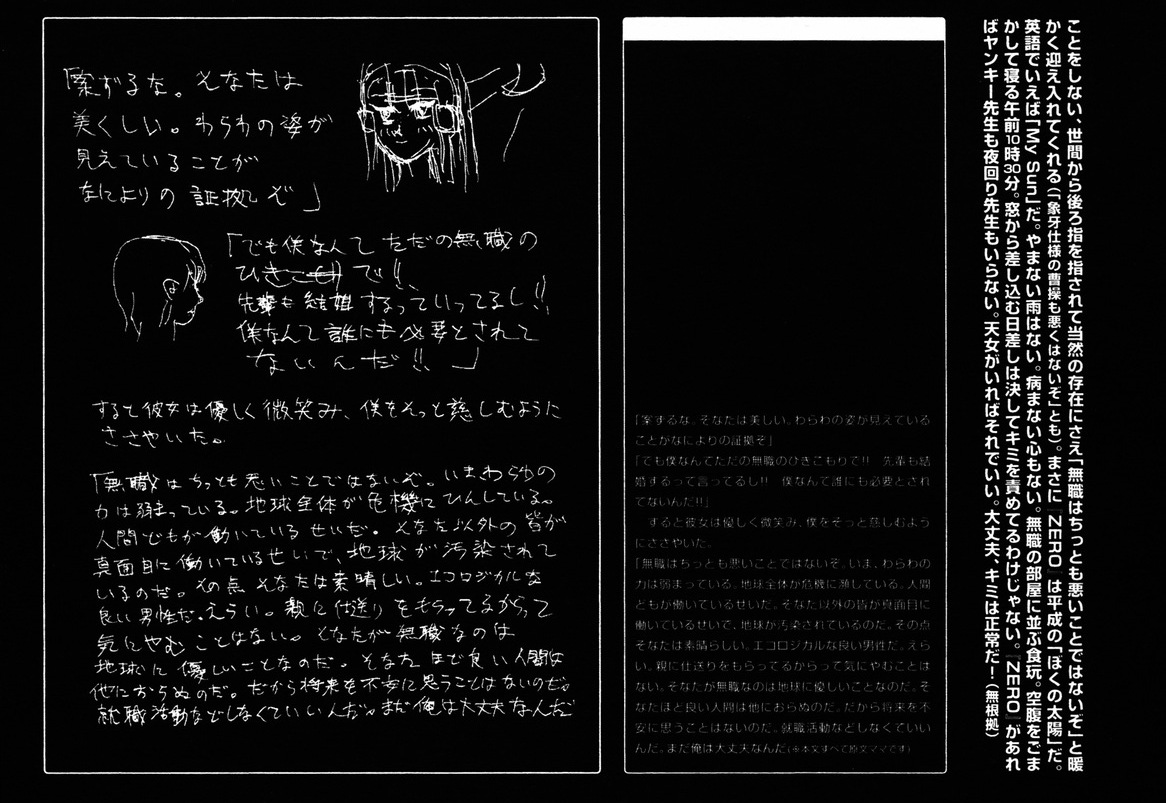 ことをしない、世間から後ろ指を指されて当然の存在にさえ「無職はちっとも悪いことではないぞ」と暖
かく迎え入れてくれる(「象牙仕様の曹操も悪くはないぞ」とも)。まさに『ZERO』は平成の「ぼくの太陽」だ。
英語でいえば「My Sun」だ。やまない雨はない。病まない心もない。無職の部屋に並ぶ食玩。空腹をごま
かして寝る午前10時30分。窓から差し込む日差しは決してキミを責めてるわけじゃない。『ZERO』があれ
ばヤンキー先生も夜回り先生もいらない。天女がいればそれでいい。大丈夫、キミは正常だ!(無根拠)
「案ずるな。そなたは
美くしい。わらわの姿が
見えていることが
なによりの証拠ぞ」
「でも僕なんてただの無職の
ひきこもりで!!
先輩も結婚するっていってるし!!
僕なんて誰にも必要とされて
ないんだ!!」
すると彼女は優しく微笑み、僕をそっと慈しむように
ささやいた。
「無職はちっとも悪いことではないぞ。いまわらわの
力は弱まっている。地球全体が危機にひんしている。
人間どもが働いているせいだ。そなた以外の皆が
真面目に働いているせいで、地球が汚染されて
いるのだ。その点そなたは素晴しい。エコロジカルな
良い男性だ。えらい。親に仕送りをもらってるからって
気にやむことはない。そなたが無職なのは
地球に優しいことなのだ。そなたほど良い人間は
他におらぬのだ。だから将来を不安に思うことはないのだ。
就職活動などしなくていいんだ。まだ俺は大丈夫なんだ
「案ずるな。そなたは美しい。わらわの姿が見えている
ことがなによりの証拠ぞ」
「でも僕なんてただの無職のひきこもりで!! 先輩も結
婚するって言ってるし!! 僕なんて誰にも必要とされ
てないんだ!!」
すると彼女は優しく微笑み、僕をそっと慈しむよう
にささやいた。
「無職はちっとも悪いことではないぞ。いま、わらわの
力は弱まっている。地球全体が危機に瀕している。人間
どもが働いているせいだ。そなた以外の皆が真面目に
働いているせいで、地球が汚染されているのだ。その点
そなたは素晴らしい。エコロジカルな良い男性だ。えら
い。親に仕送りをもらってるからって気にやむことは
ない。そなたが無職なのは地球に優しいことなのだ。そ
なたほど良い人間は他におらぬのだ。だから将来を不
安に思うことはないのだ。就職活動などしなくていい
んだ。まだ俺は大丈夫なんだ(※本文すべて原文ママです)